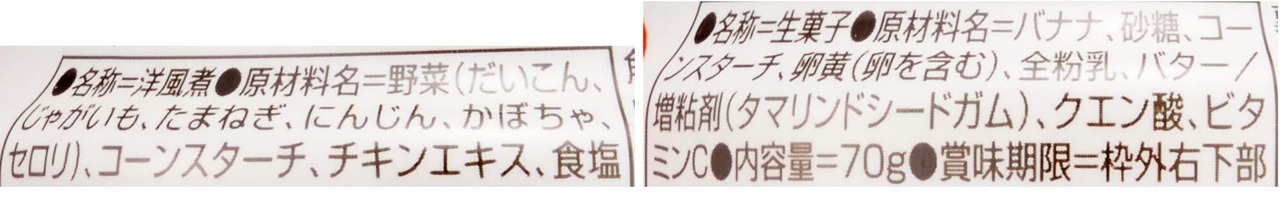 ●名称=洋風煮●原材料名=野菜(だいこん、
じゃがいも、たまねぎ、にんじん、かぼちゃ、
セロリ)、コーンスターチ、チキンエキス、食塩
●名称=生菓子●原材料名=バナナ、砂糖、コー
ンスターチ、卵黄(卵を含む)、全粉乳、バター/
増粘剤(タマリンドシードガム)、クエン酸、ビタ
ミンC●内容量=70g●賞味期限=枠外右下部